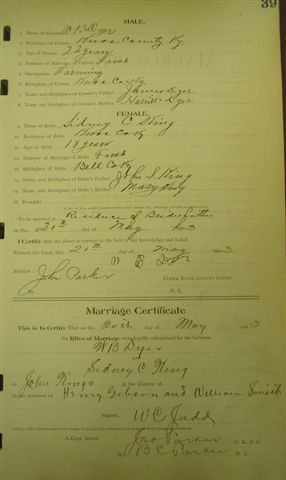 39
MALE.
1. Name of Groom W B Dyer
2. Residence of Groom Knox County Ky
3. Age of Groom 22 years
4. Number of Marriage of Groom First
5. Occupation Farming
6. Birthplace of Groom Knox County
7. Name and Birthplace of Groom's Father James Dyer
8. Name and Birthplace of Groom's Mother Harriett Dyer
FEMALE.
9. Name of Bride Sidney C King
10. Residence of Bride Knox Co Ky
11. Age of Bride 18 years
12. Number of Marriage of Bride First
13. Birthplace of Bride Bell Co Ky
14. Name and Birthplace of Bride's Father John S King
15. Name and Birthplace of Bride's Mother Mary
16. Remarks
To be married at Residence of Brides father
on the 20th day of May
I Certify that the above is correct to the best of my knowledge and belief.
Witness my hand, this 20th day of May
W B Dyer
Attest:
John Parker
CLERK KNOX COUNTY COURT.
D. C.
Marriage Certificate
This is to Certify That on the 20th day of May
the Rites of Marriage were legally solemnized by me between
W B Dyer
and Sidney C King
at John Kings in the County of
in the presence of Henry Gibson and William Smith
Signed, W C Judd
A Copy Attest: Jno Parker
By B E Parker D C